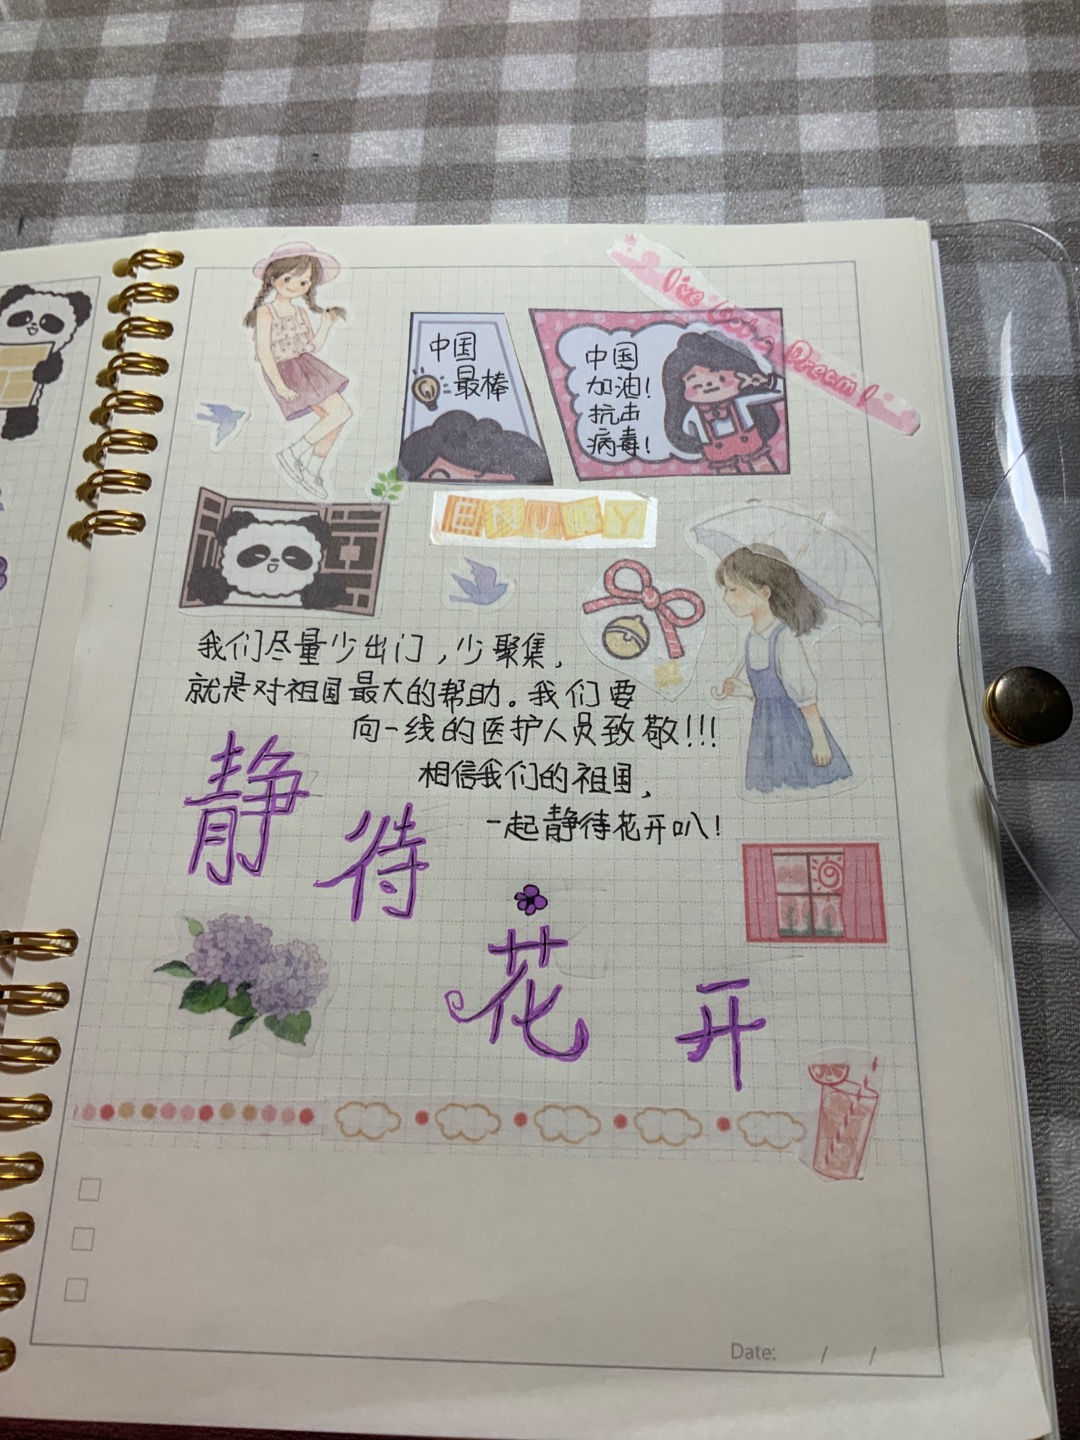 中国
最棒
中国
加油！
抗击
病毒！
ENJOY
我们尽量少出门，少聚集，
就是对祖国最大的帮助。我们要
向一线的医护人员致敬！！！
相信我们的祖国，
一起静待花开叭！
静待
花开
Date: / /